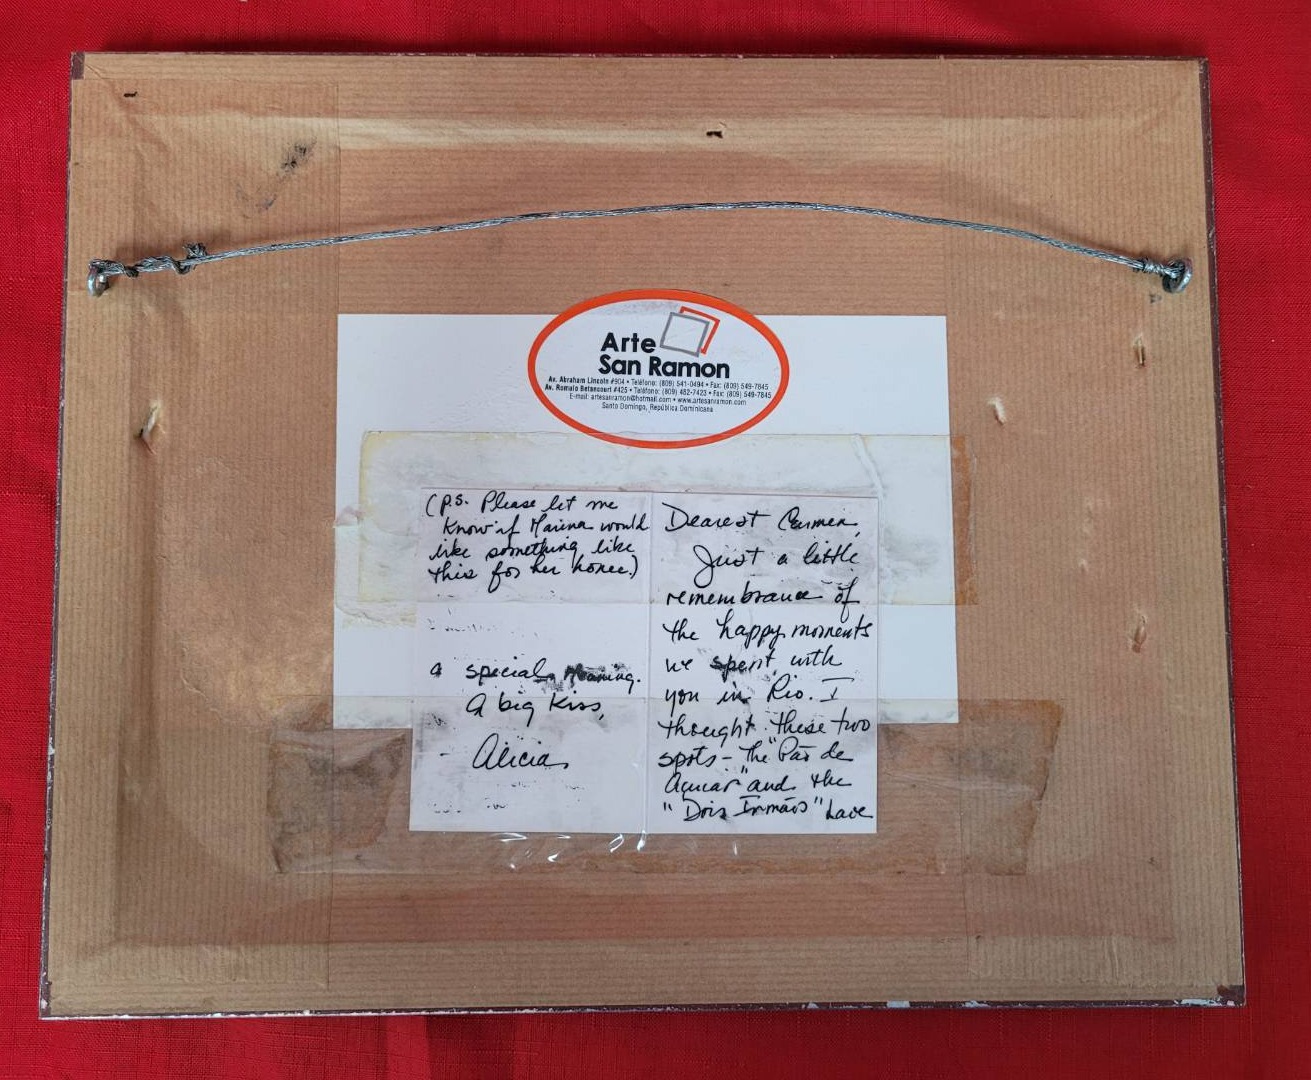 Arte
San Ramon
Av. Abraham Lincoln #904 • Teléfono: (809) 541-0494 • Fax: (809) 549-7845
Av. Romulo Betancourt #425 • Teléfono: (809) 482-7423 • Fax: (809) 549-7845
E-mail: artesanramon@hotmail.com • www.artesanramon.com
Santo Domingo, República Dominicana
(P.S. Please let me
know if Marina would
like something like
this for her home.)
a special meaning.
A big kiss,
Alicia
Dearest Carmen,
Just a little
remembrance of
the happy moments
we spent with
you in Rio. I
thought these two
spots - the "Pão de
Açucar" and the
"Dois Irmãos" have